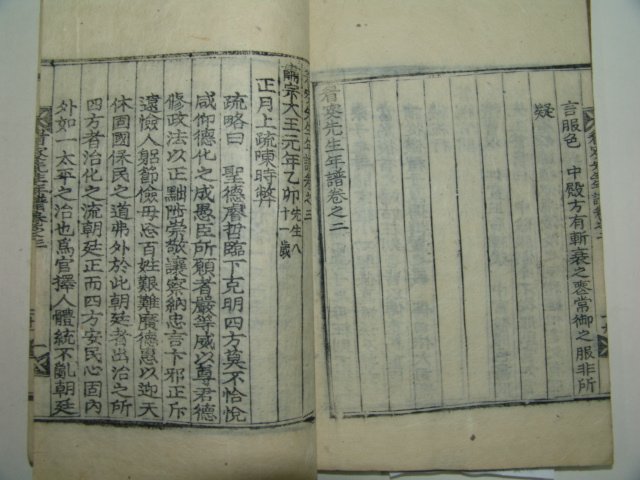 言服色 中殿方有斬衰之喪常御之服非所
疑
眉叟先生年譜卷之二
眉叟先生年譜卷之三
肅宗大王元年乙卯先生八十一歲
正月上疏陳時弊
疏略曰 聖德哲臨下克明四方莫不怡悅
咸仰德化之盛愚臣所願者嚴等威以尊君德
修政法以正黜陟崇敬讓察納忠言卞邪正斥
遠憸人躬節儉毋忘百姓艱難廣德惠以迎天
休固國保民之道弗外於此朝廷者出治之所
四方者治化之流朝廷正而四方安民心固內
外如一太平之治也爲官擇人體統不亂朝廷
眉叟先生年譜卷之三